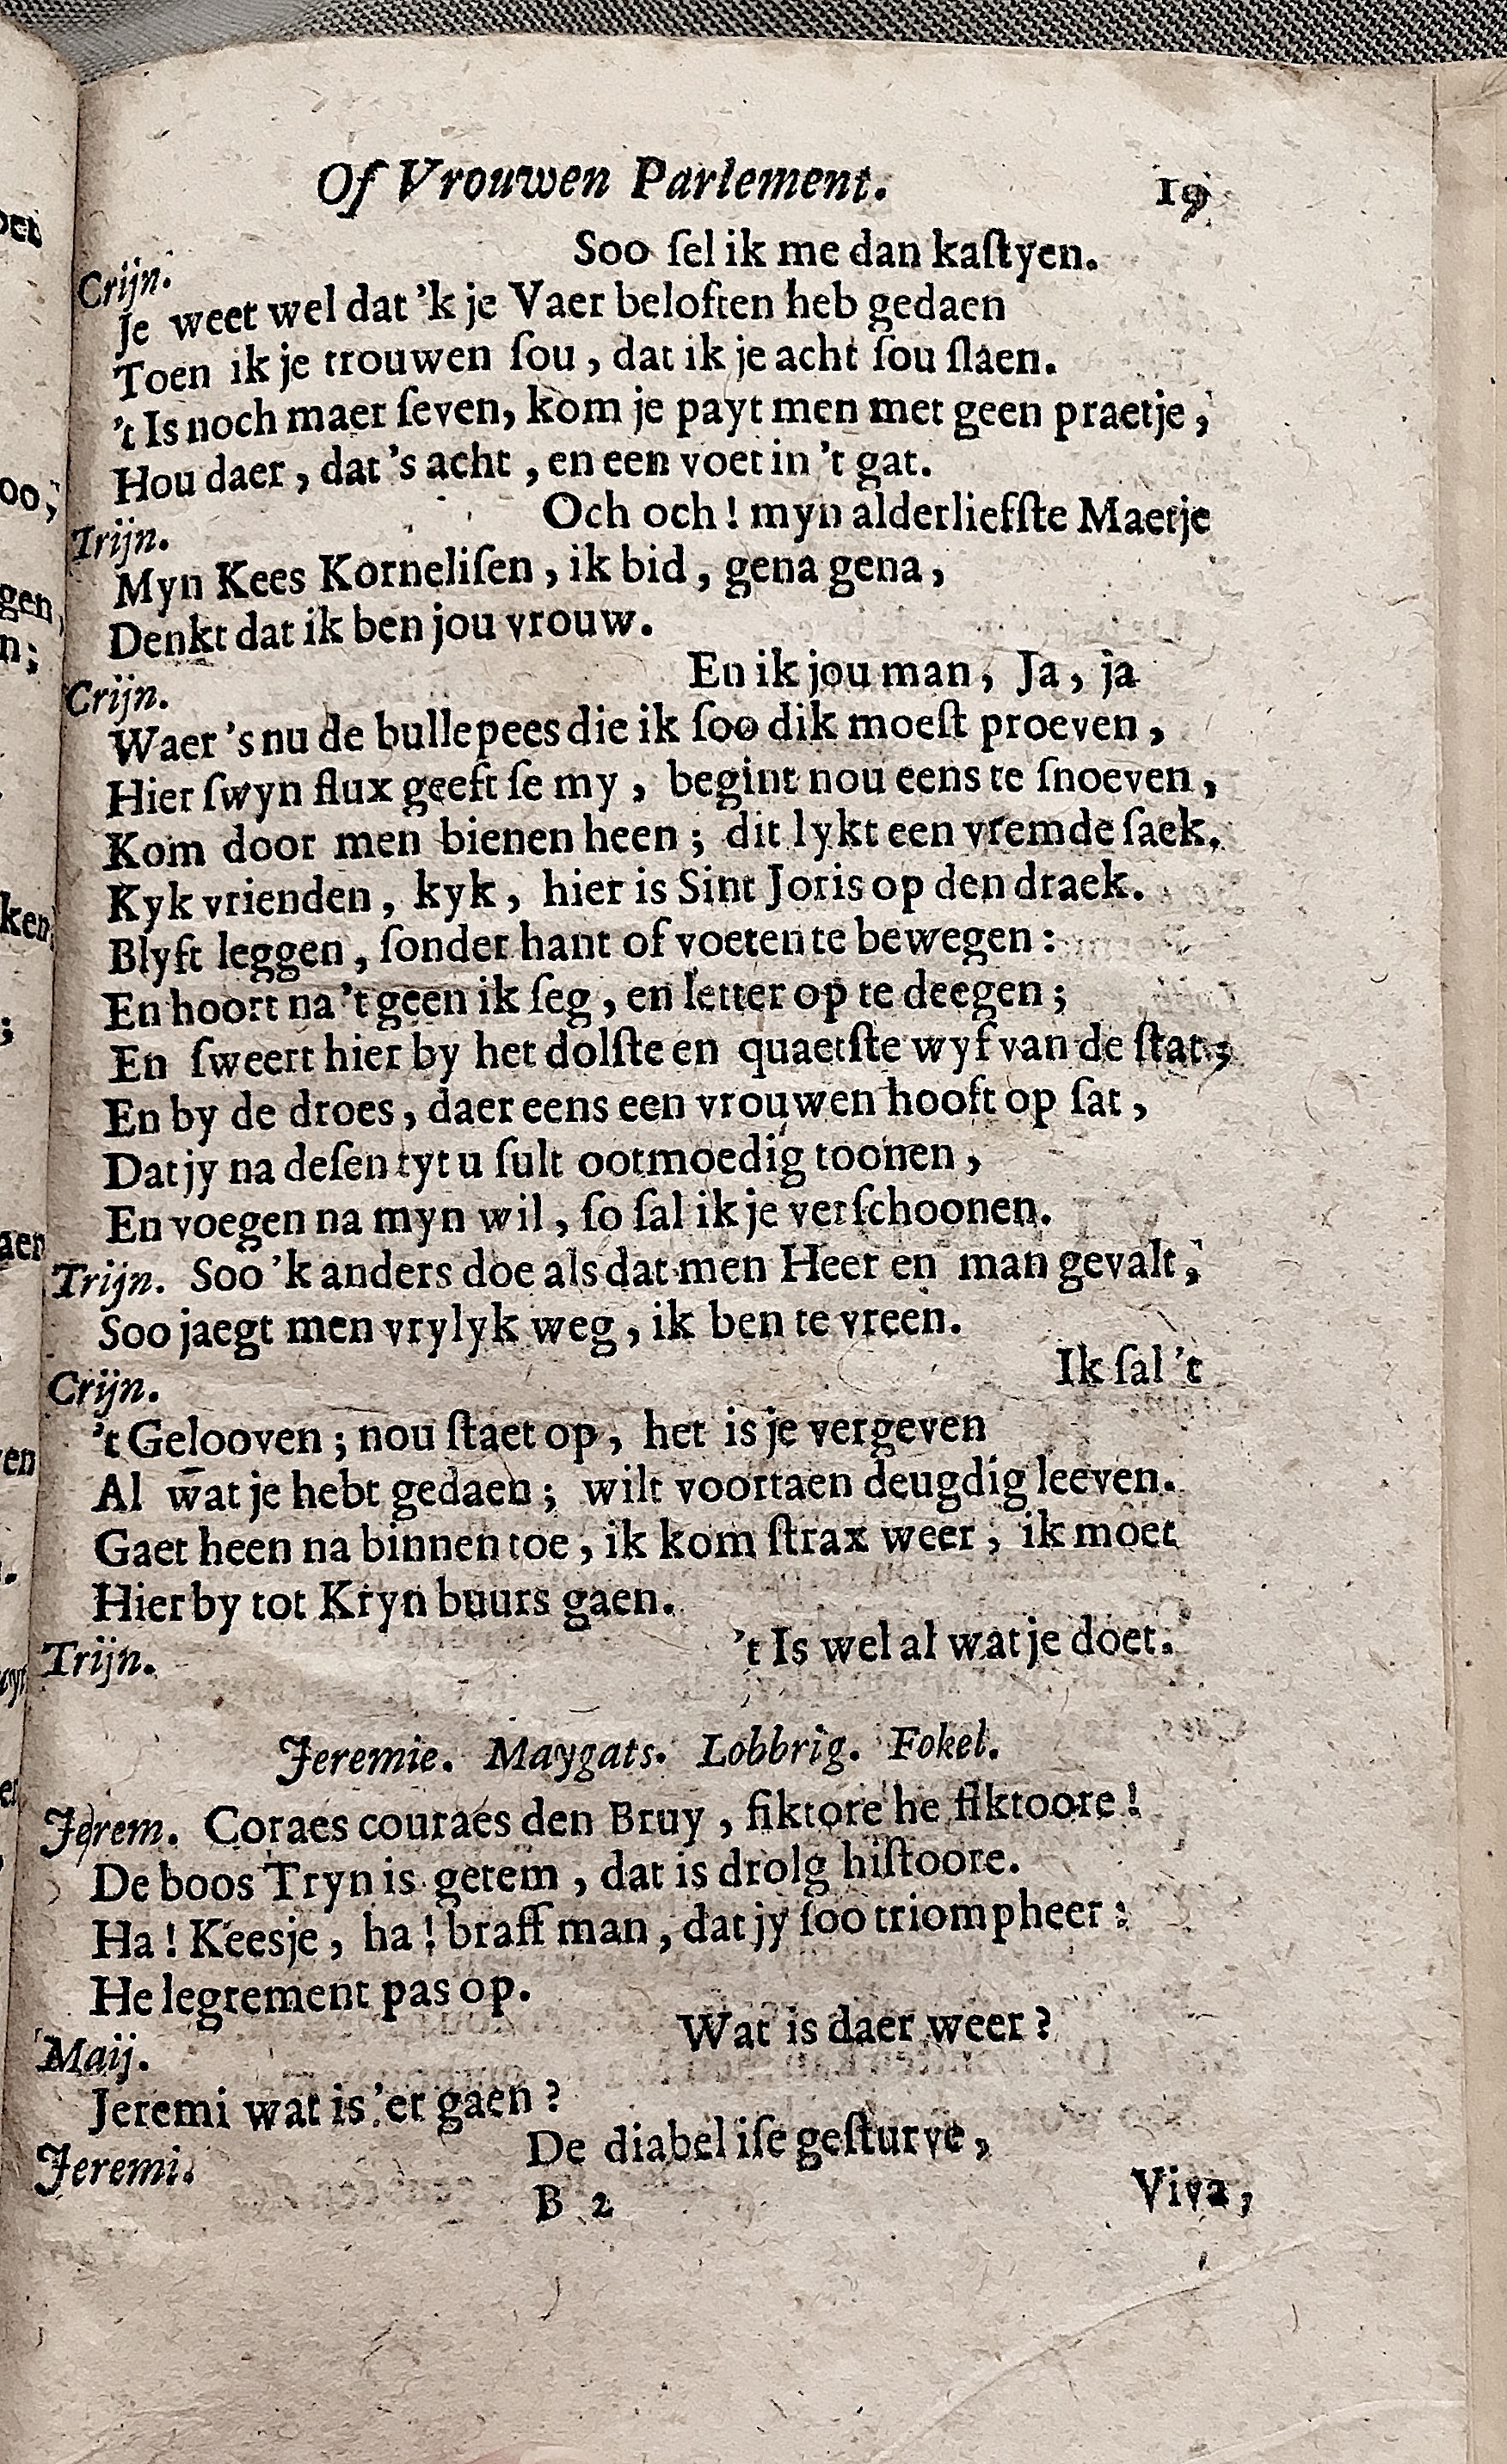 Of Vrouwen Parlement. 19
Soo ſel ik me dan kaſtyen.
Crijn.
Je weet wel dat 'k je Vaer beloften heb gedaen
Toen ik je trouwen ſou, dat ik je acht ſou ſlaen.
't Is noch maer ſeven, kom je payt men met geen praetje,
Hou daer, dat 's acht, en een voet in 't gat.
Och och! myn alderliefſte Maetje
Trijn.
Myn Kees Korneliſen, ik bid, gena gena,
Denkt dat ik ben jou vrouw.
En ik jou man, Ja, ja
Crijn.
Waer 's nu de bullepees die ik ſoo dik moeſt proeven,
Hier ſwyn flux geeft ſe my, begint nou eens te ſnoeven,
Kom door men bienen heen; dit lykt een vremde ſaek.
Kyk vrienden, kyk, hier is Sint Joris op den draek.
Blyft leggen, ſonder hant of voeten te bewegen:
En hoort na 't geen ik ſeg, en letter op te deegen;
En ſweert hier by het dolſte en quaetſte wyf van de ſtat,
En by de droes, daer eens een vrouwen hooft op ſat,
Dat jy na deſen tyt u ſult ootmoedig toonen,
En voegen na myn wil, ſo ſal ik je verſchoonen.
Trijn. Soo 'k anders doe als dat men Heer en man gevalt,
Soo jaegt men vrylyk weg, ik ben te vreen.
Ik ſal 't
Crijn.
't Gelooven; nou ſtaet op, het is je vergeven
Al wat je hebt gedaen; wilt voortaen deugdig leeven.
Gaet heen na binnen toe, ik kom ſtrax weer; ik moet
Hier by tot Kryn buurs gaen.
't Is wel al wat je doet.
Trijn.
Jeremie. Maygats. Lobbrig. Fokel.
Jerem. Coraes couraes den Bruy, fiktore he fiktoore!
De boos Tryn is getem, dat is drolg hiſtoore.
Ha! Keesje, ha! braff man, dat jy ſoo triompheer:
He legrement pas op.
Wat is daer weer?
Maij.
Jeremi wat is 'er gaen?
De diabel iſe geſturve,
Jeremi.
B 2 Viva,